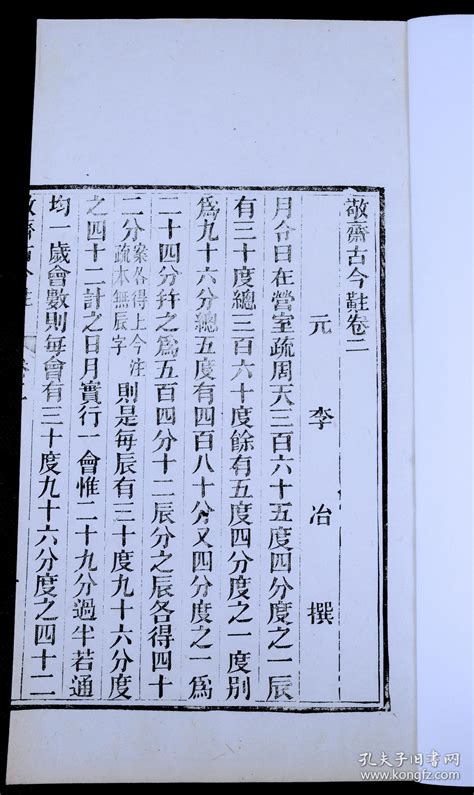 敬齋古今黈卷二
元 李 冶 撰
月令日在營室疏周天三百六十五度四分度之一辰
有三十度總三百六十度餘有五度四分度之一度別
爲九十六分總五度有四百八十分又四分度之一爲
二十四分幷之爲五百四分十二辰分之辰各得四十
二分案各得上今注疏本無辰字則是每辰有三十度九十六分度
之四十二計之日月實行一會惟二十九分過半若通
均一歲會數則每會有三十度九十六分度之四十二
孔夫子旧书网
www.kongfz.com